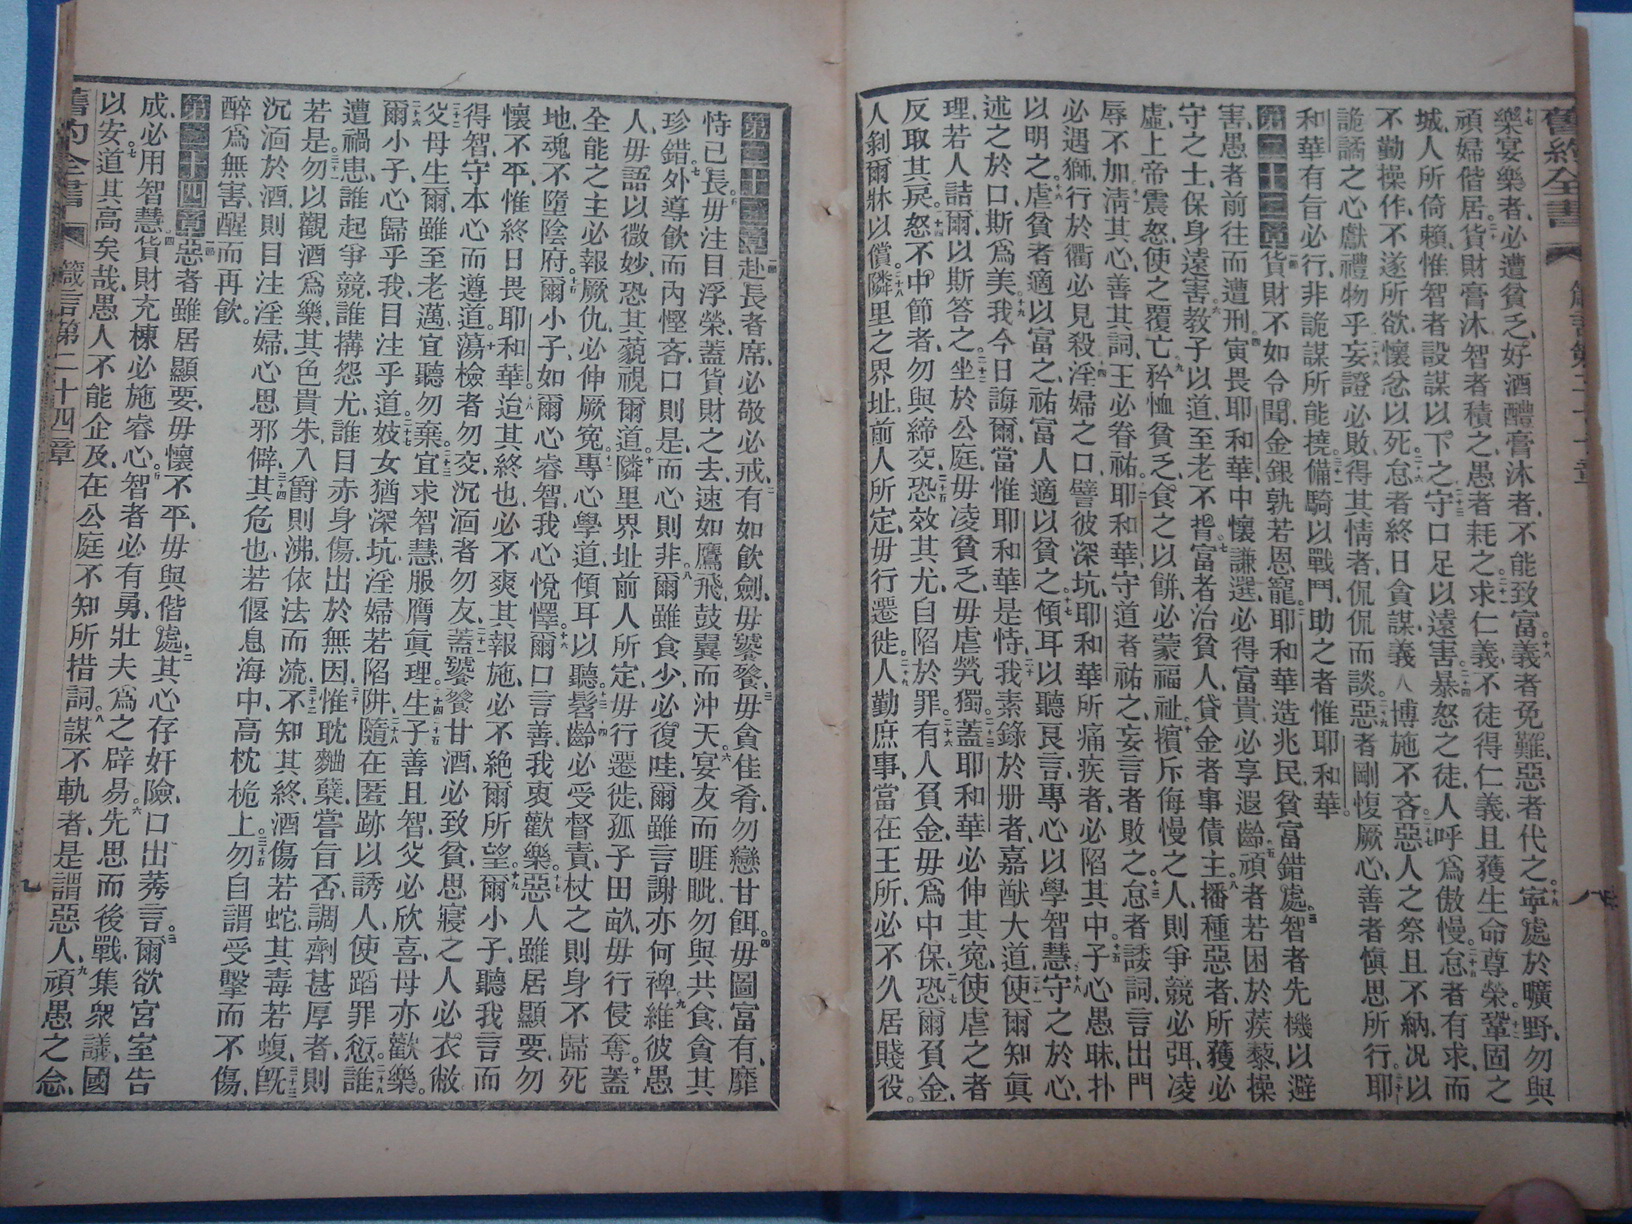 舊約全書 箴言第二十一章 八
樂宴樂者必遭貧乏好酒醴膏沐者不能致富義者免難惡者代之寧處於曠野勿與
頑婦偕居貨財膏沐智者積之愚者耗之求仁義不徒得仁義且獲生命尊榮鞏固之
城人所倚賴惟智者設謀以下之守口足以遠害暴怒之徒人呼爲傲慢怠者有求而
不勤操作不遂所欲懷忿以死怠者終日貪謀義人博施不吝惡人之祭且不納况以
詭譎之心獻禮物乎妄證必敗得其情者侃侃而談惡者剛愎厥心善者愼思所行耶
和華有旨必行非詭謀所能撓備騎以戰鬥助之者惟耶和華
第二十二章貨財不如令聞金銀孰若恩寵耶和華造兆民貧富錯處智者先機以避
害愚者前往而遭刑寅畏耶和華中懷謙選必得富貴必享遐齡頑者若困於蒺藜操
守之士保身遠害教子以道至老不背富者治貧人貸金者事債主播種惡者所獲必
虛上帝震怒使之覆亡矜恤貧乏食之以餅必蒙福祉擯斥侮慢之人則爭競必弭凌
辱不加淸其心善其詞王必眷祐耶和華守道者祐之妄言者敗之怠者諉詞言出門
必遇獅行於衢必見殺淫婦之口譬彼深坑耶和華所痛疾者必陷其中子心愚昧扑
以明之虐貧者適以富之祐富人適以貧之傾耳以聽艮言專心以學智慧守之於心
述之於口斯爲美我今日誨爾當惟耶和華是恃我素錄於册者嘉猷大道使爾知眞
理若人詰爾以斯答之坐於公庭毋凌貧乏毋虐煢獨蓋耶和華必伸其寃使虐之者
反取其戾怒不中節者勿與締交恐效其尤自陷於罪有人負金毋爲中保恐爾負金
人剝爾牀以償隣里之界址前人所定毋行遷徙人勤庶事當在王所必不久居賤役
第二十三章赴長者席必敬必戒有如飲劍毋饕餮毋貪佳肴勿戀甘餌毋圖富有靡
恃已長毋注目浮榮蓋貨財之去速如鷹飛鼓翼而沖天宴友而睚眦勿與共食貪其
珍錯外導飲而內慳吝口則是而心則非爾雖食少必復哇爾雖言謝亦何裨維彼愚
人毋語以微妙恐其藐視爾道隣里界址前人所定毋行遷徙孤子田畝毋行侵奪蓋
全能之主必報厥仇必伸厥寃專心學道傾耳以聽髫齡必受督責杖之則身不歸死
地魂不墮陰府爾小子如爾心睿智我心悅懌爾口言善我衷歡樂惡人雖居顯要勿
懷不平惟終日畏耶和華迨其終也必不爽其報施必不絶爾所望爾小子聽我言而
得智守本心而遵道蕩檢者勿交沉湎者勿友蓋饕餮甘酒必致貧思寢之人必衣敝
父母生爾雖至老邁宜聽勿棄宜求智慧服膺眞理生子善且智父必欣喜母亦歡樂
爾小子心歸乎我目注乎道妓女猶深坑淫婦若陷阱隨在匿跡以誘人使蹈罪愆誰
遭禍患誰起爭競誰搆怨尤誰目赤身傷出於無因惟耽麯蘖嘗旨否調劑甚厚者則
若是勿以觀酒爲樂其色貴朱入爵則沸依法而流不知其終酒傷若蛇其毒若蝮旣
沉湎於酒則目注淫婦心思邪僻其危也若偃息海中高枕桅上勿自謂受擊而不傷
醉爲無害醒而再飲
第二十四章惡者雖居顯要毋懷不平毋與偕處其心存奸險口出莠言爾欲宮室告
成必用智慧貨財充棟必施睿心智者必有勇壯夫爲之辟易先思而後戰集衆議國
以安道其高矣哉愚人不能企及在公庭不知所措詞謀不軌者是謂惡人頑愚之念
舊約全書 箴言第二十四章 九